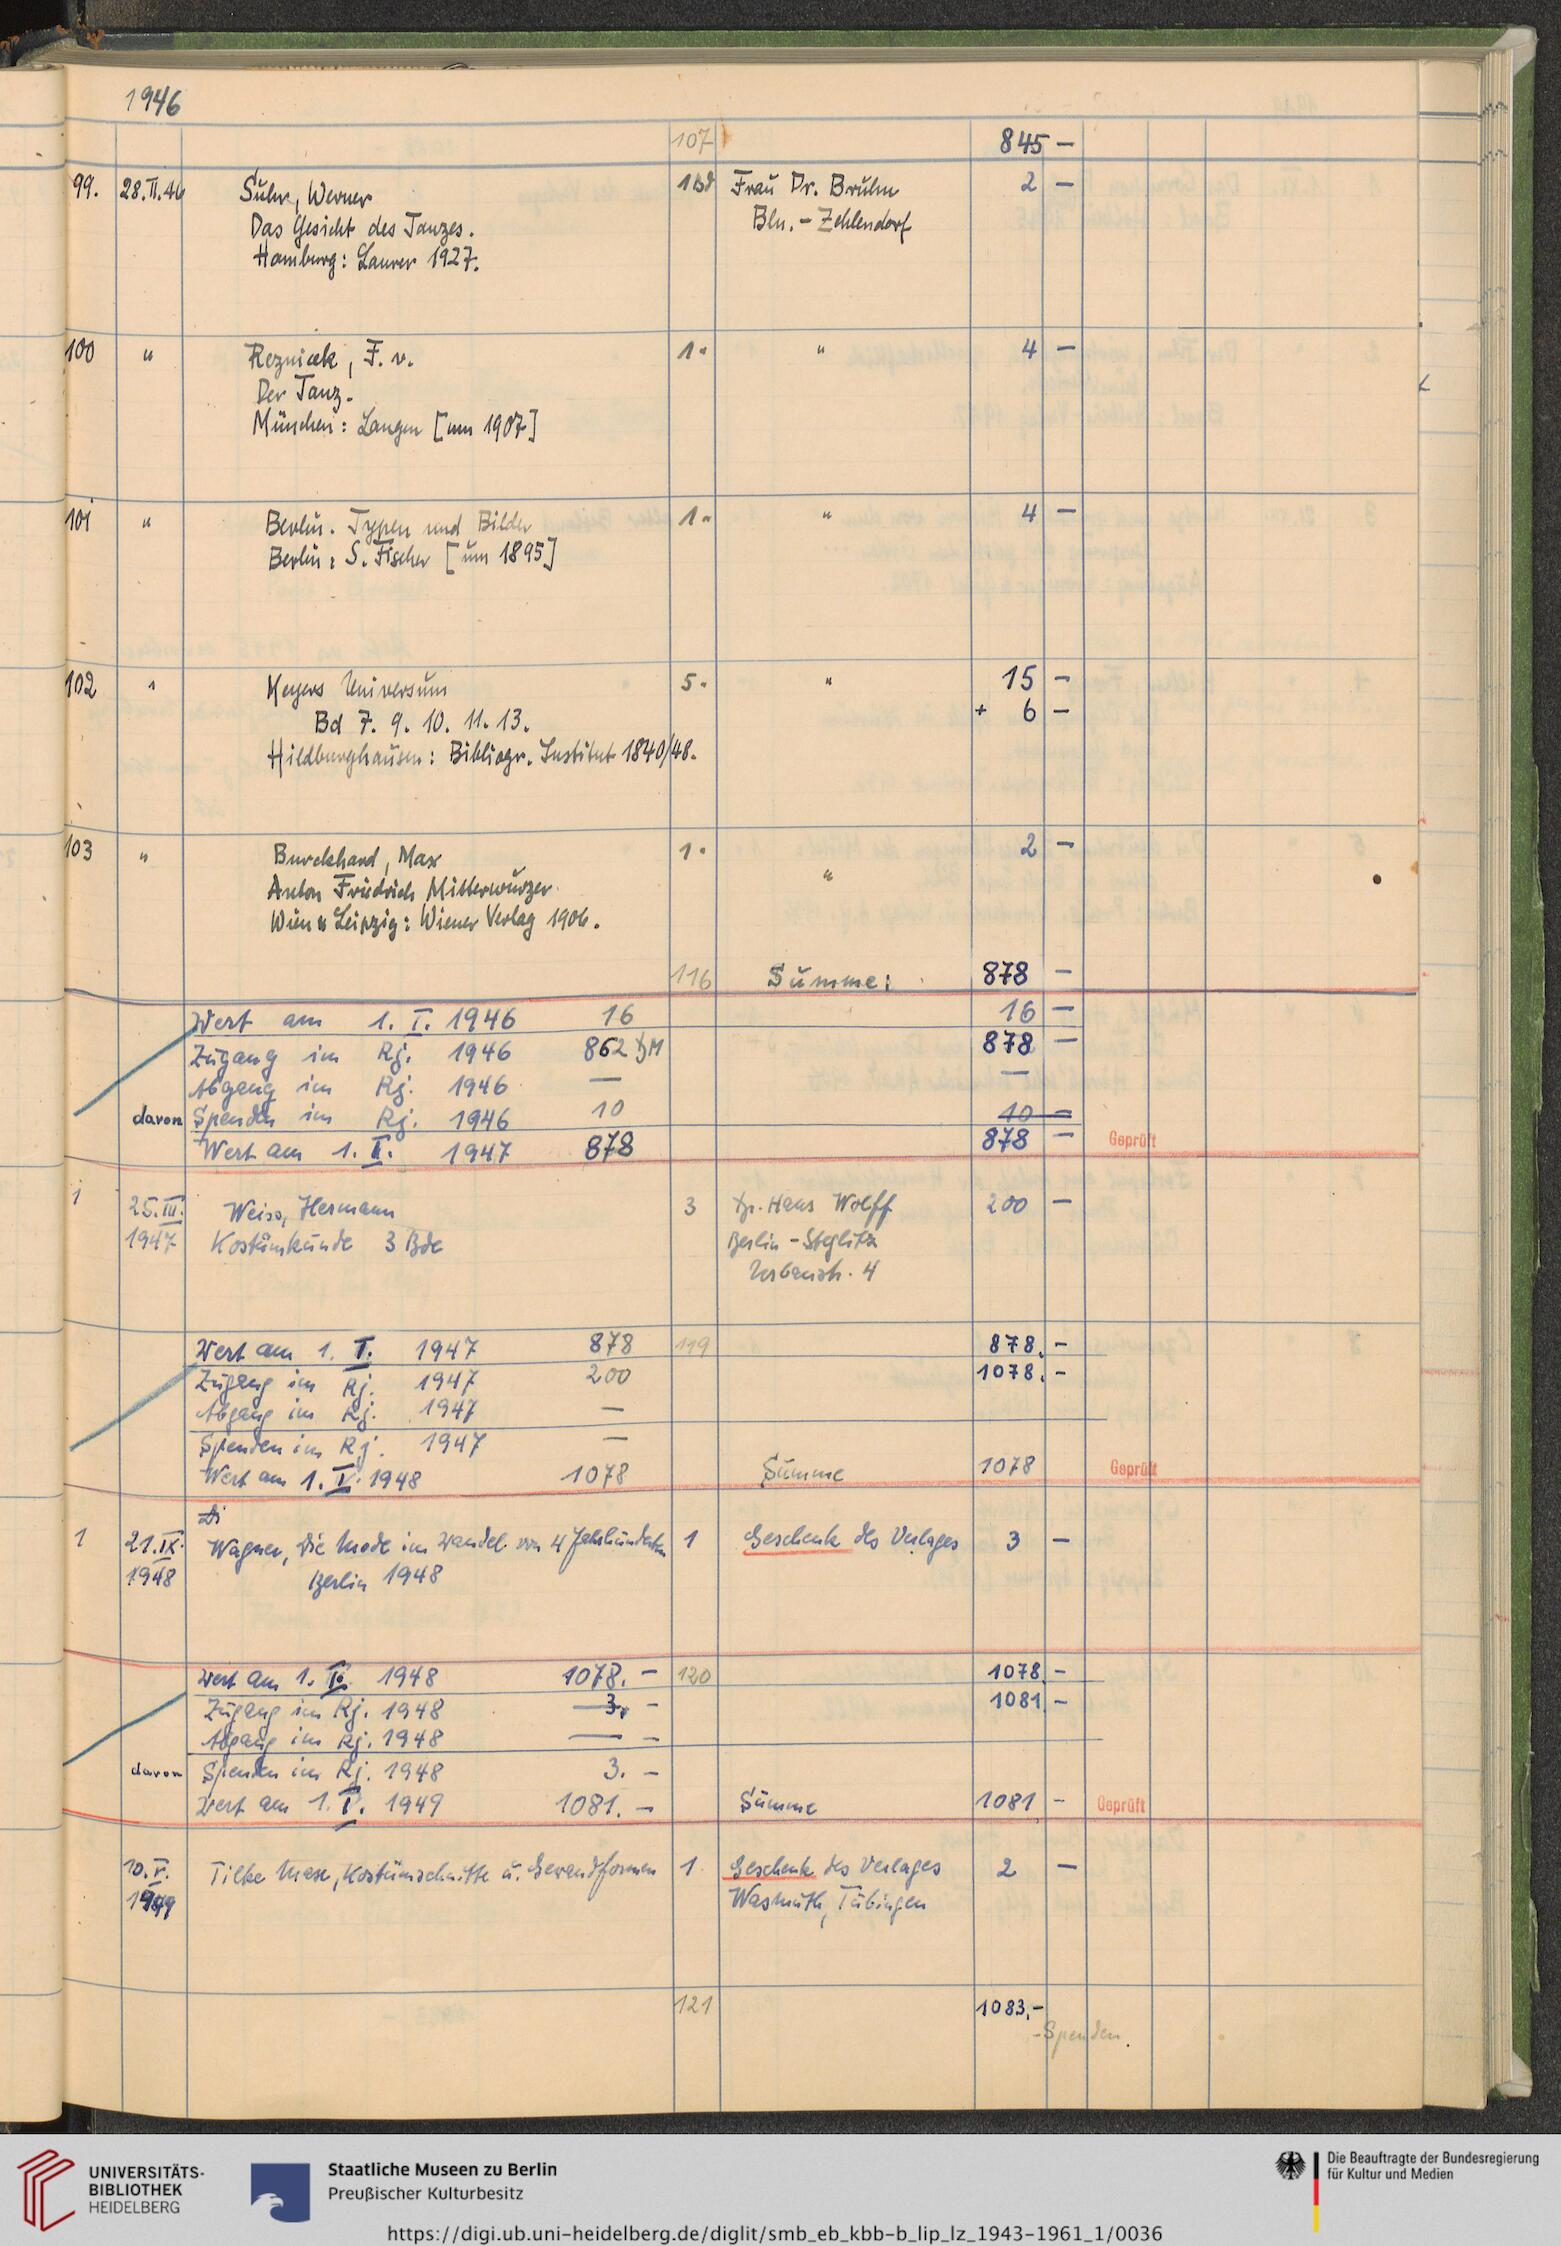 1946
107 845 –
99. 28.II.46 Suhr, Werner 1 Bd Frau Dr. Bruhn 2 –
Das Gesicht des Tanzes. Bln. – Zehlendorf
Hamburg: Laurer 1927.
100 " Reznicek, F. v. 1 " " 4 –
Der Tanz.
München: Langen [um 1907]
101 " Berlin. Typen und Bilder 1 " " 4 –
Berlin: S. Fischer [um 1895]
102 " Meyers Universum 5 " " 15 –
Bd 7. 9. 10. 11. 13. + 6 –
Hildburghausen: Bibliogr. Institut 1840/48.
103 " Burckhard, Max 1 " " 2 –
Anton Friedrich Mitterwurzer
Wien u Leipzig: Wiener Verlag 1906.
116 Summe: 878 –
Wert am 1. I. 1946 16 16 –
Zugang im Rj. 1946 862 DM 878 –
Abgang im Rj. 1946 — —
davon Spenden im Rj. 1946 10 10 –
Wert am 1. I. 1947 878 878 – Geprüft
1 25.III. Weiss, Hermann 3 Dr. Hans Wolff 200 –
1947 Kostümkunde 3 Bde Berlin – Steglitz
4
Wert am 1. I. 1947 878 119 878. –
Zugang im Rj. 1947 200 1078. –
Abgang im Rj. 1947 —
Spenden im Rj. 1947 —
Wert am 1. 1948 1078 Summe 1078 Geprüft
Di
1 21.IX. Wagner, Die Mode im Wandel von 4 Jahrhunderten 1 Geschenk des Verlages 3 –
1948 Berlin 1948
Wert am 1. 1948 1078. – 120 1078 –
Zugang im Rj. 1948 3. – 1081 –
Abgang im Rj. 1948 — –
davon Spenden im Rj. 1948 3. –
Wert am 1. 1949 1081. – Summe 1081 – Geprüft
10.V. Tilke Max, Kostümschnitte u. Gewandformen 1 Geschenk des Verlages 2 –
1949 Wasmuth, Tübingen
121 1083,–
– Spenden.
UNIVERSITÄTS-
BIBLIOTHEK
HEIDELBERG
Staatliche Museen zu Berlin
Preußischer Kulturbesitz
Die Beauftragte der Bundesregierung
für Kultur und Medien
https://digi.ub.uni-heidelberg.de/diglit/smb_eb_kbb-b_lip_lz_1943-1961_1/0036